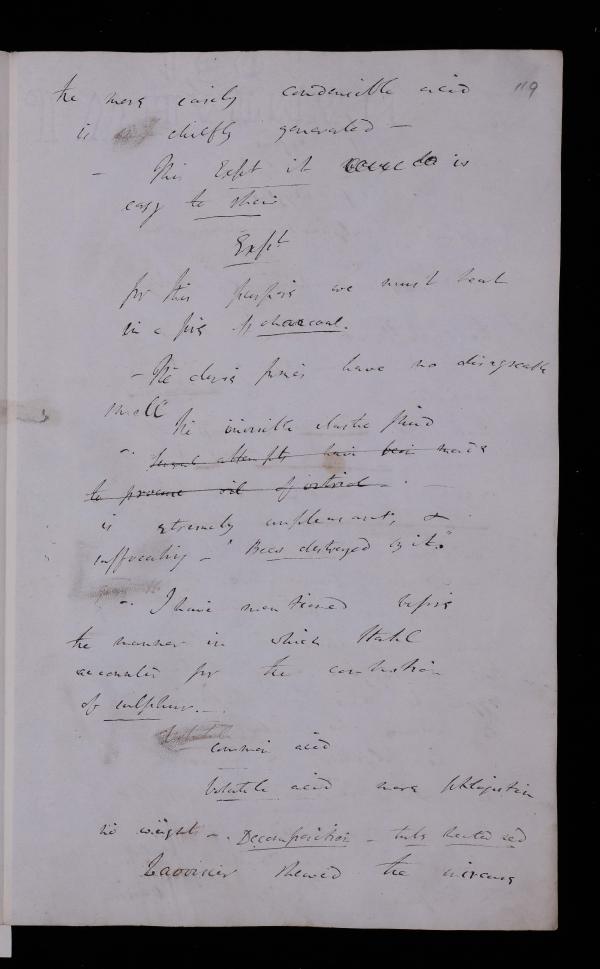 119
the more easily condensible acid
is chiefly generated —
— This Expt it is
easy to shew
Expt
for this purpose we must heat
in a fire of charcoal.
— The dense fumes have no disagreeable
smell
The invisible elastic fluid
— Several attempts have been made
to procure oil of vitriol — . —
is extremely unpleasant, &
suffocating — "Bees destroyed by it."
— I have mentioned before
the manner in which Stahl
accounted for the combustion
of sulphur. —
common acid
Volatile acid more phlogiston
no weight — . Decomposition — tube heated red
Lavoisier shewed the